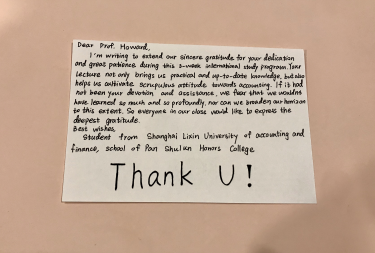 Dear Prof. Howard,
I'm writing to extend our sincere gratitude for your dedication
and great patience during this 2-week international study program. Your
lecture not only brings us practical and up-to-date knowledge, but also
helps us cultivate scrupulous attitude towards accounting. If it had
not been your devotion and assistance, we fear that we wouldn't
have learned so much and so profoundly, nor can we broaden our horizon
to this extent. So everyone in our class would like to express the
deepest gratitude.
Best wishes,
Student from Shanghai Lixin University of accounting and
finance, school of Pan Shulun Honors College
Thank U!